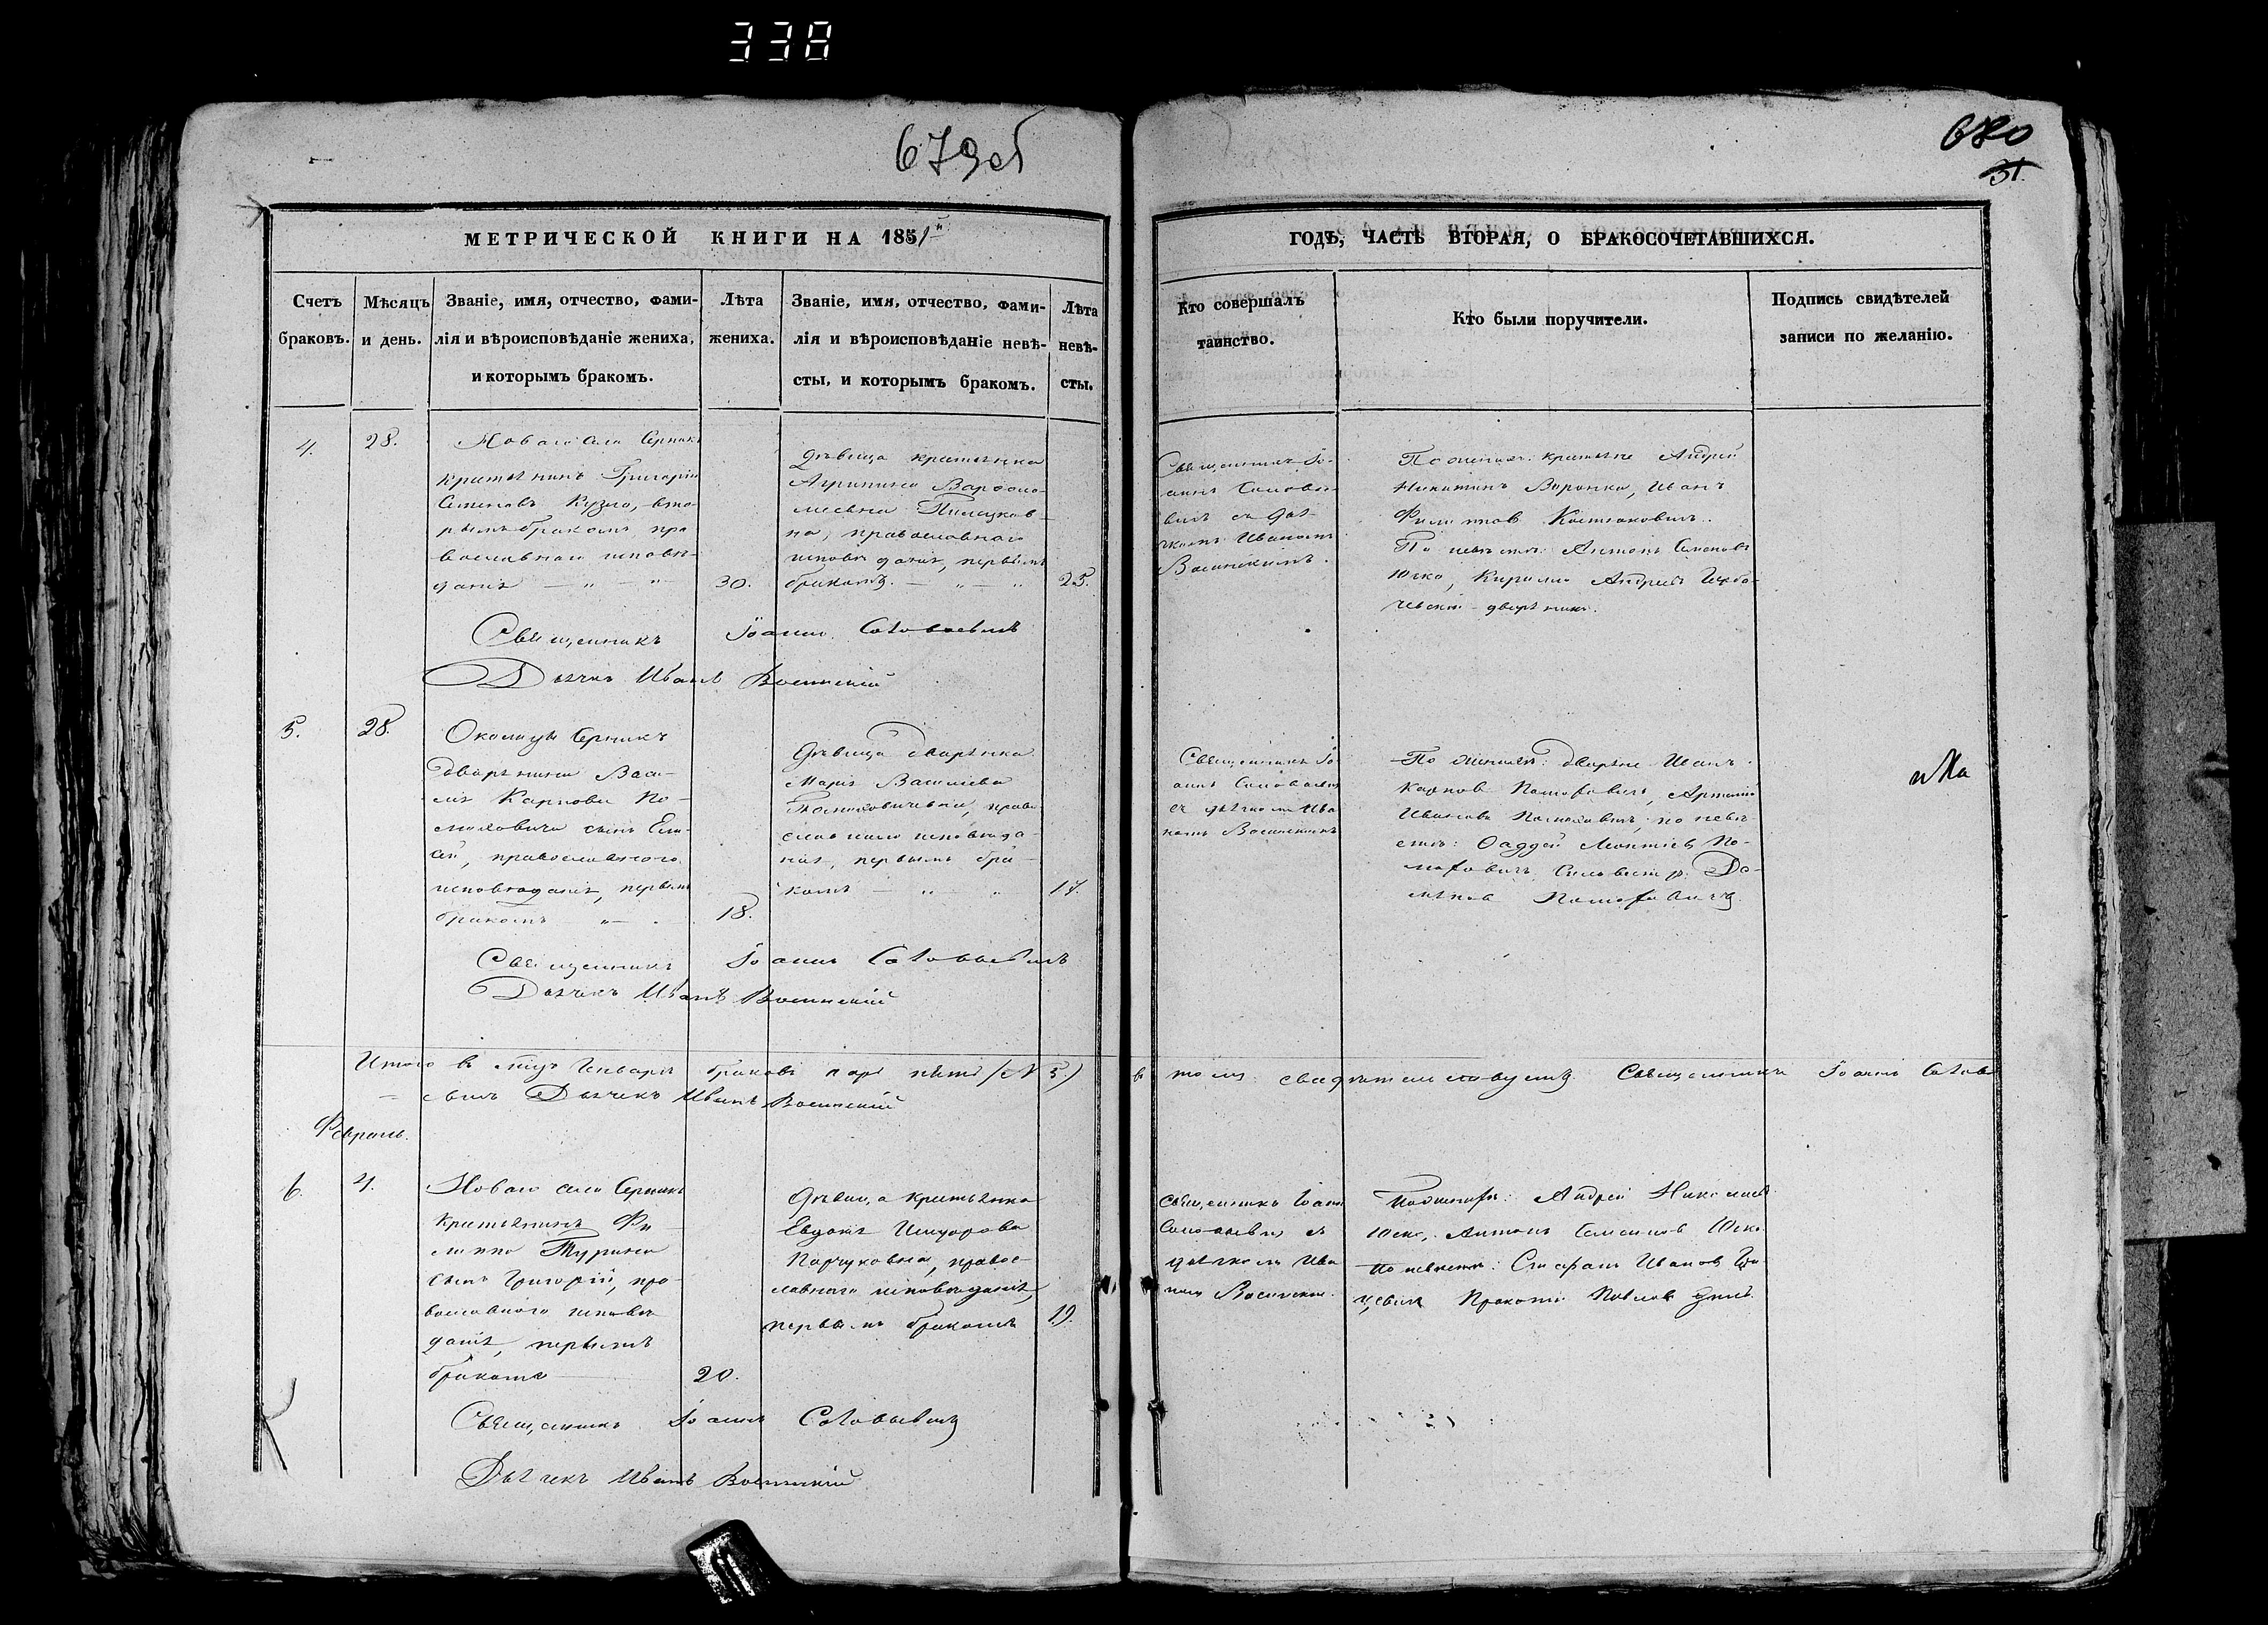 338
679об
680
31.
МЕТРИЧЕСКОЙ КНИГИ НА 1851й
ГОДЪ, ЧАСТЬ ВТОРАЯ, О БРАКОСОЧЕТАВШИХСЯ.
Счетъ
браковъ.
Мѣсяцъ
и день.
Званіе, имя, отчество, фами-
лія и вѣроисповѣданіе жениха,
и которымъ бракомъ.
Лѣта
жениха.
Званіе, имя, отчество, фами-
лія и вѣроисповѣданіе невѣ-
сты, и которымъ бракомъ.
Лѣта
невѣ-
сты.
Кто совершалъ
таинство.
Кто были поручители.
Подпись свидѣтелей
записи по желанію.
4.
28.
Новаго села Серникъ
крестьянинъ Григорій
Семеновъ Кузло, вто-
рымъ бракомъ пра
вославнаго исповѣ-
данія
30.
Дѣвица крестьянка
Агрипина Варфоло-
меевна
на, православнаго
исповѣданія, первымъ
бракомъ.
25.
Священникъ Іо-
аннъ Соловье
вичъ съ дья-
чкомъ Иваномъ
Восинскимъ.
По женихѣ: крестьяне Андрей
Никитинъ Воронко, Иванъ
Филиповъ Костюковичъ.
По невѣстѣ: Антонъ Семеновъ
Юско, Кирилло Андреевъ Щерба-
чевскій - дворянинъ.
Священникъ Іоаннъ Соловьевичъ
Дьячекъ Иванъ Восинскій
5.
28.
Околицы Серникъ
дворянина Васи-
лія Карпова По-
лховича сынъ Ели-
сей, православнаго
исповѣданія, первымъ
бракомъ
18.
Дѣвица дворянка
Марія Васильева
право
славнаго исповѣда-
нія, первымъ бра-
комъ
17.
Священникъ Іо
аннъ Соловьевичъ
съ дьячкомъ Ива
номъ Восинскимъ
По женихѣ: дворяне Иванъ
Карповъ
Ивановъ по невѣ-
стѣ: Фаддей Леонтіевъ
Сильвестръ
Священникъ Іоаннъ Соловьевичъ
Дьячекъ Иванъ Восинскій
Итого въ мцѣ Январѣ браковъ паръ пять (N 5.) в томъ свидѣтельствуемъ. Священникъ Іоаннъ Солов
= ьевичъ Дьячекъ Иванъ Восинскій
Февраль.
6.
4.
Новаго села Серникъ
крестьянинъ Фи
липпа
сынъ Григорій, пра-
вославнаго исповѣ
данія, первымъ
бракомъ
20.
Дѣвица крестьянка
Евдокія Исидорова
Полуковна, правос-
лавнаго исповѣданія,
первымъ бракомъ
19.
Священникъ Іоаннъ
Соловьевичъ съ
дьячкомъ Ива
номъ Восинским.
По женихѣ: Андрей Николаевъ
Юско, Антонъ Семеновъ Юско.
по невѣстѣ: Стефанъ Ивановъ
Прокопій Павловъ
Священникъ Іоаннъ Соловьевичъ
Дьячекъ Иванъ Восинскій